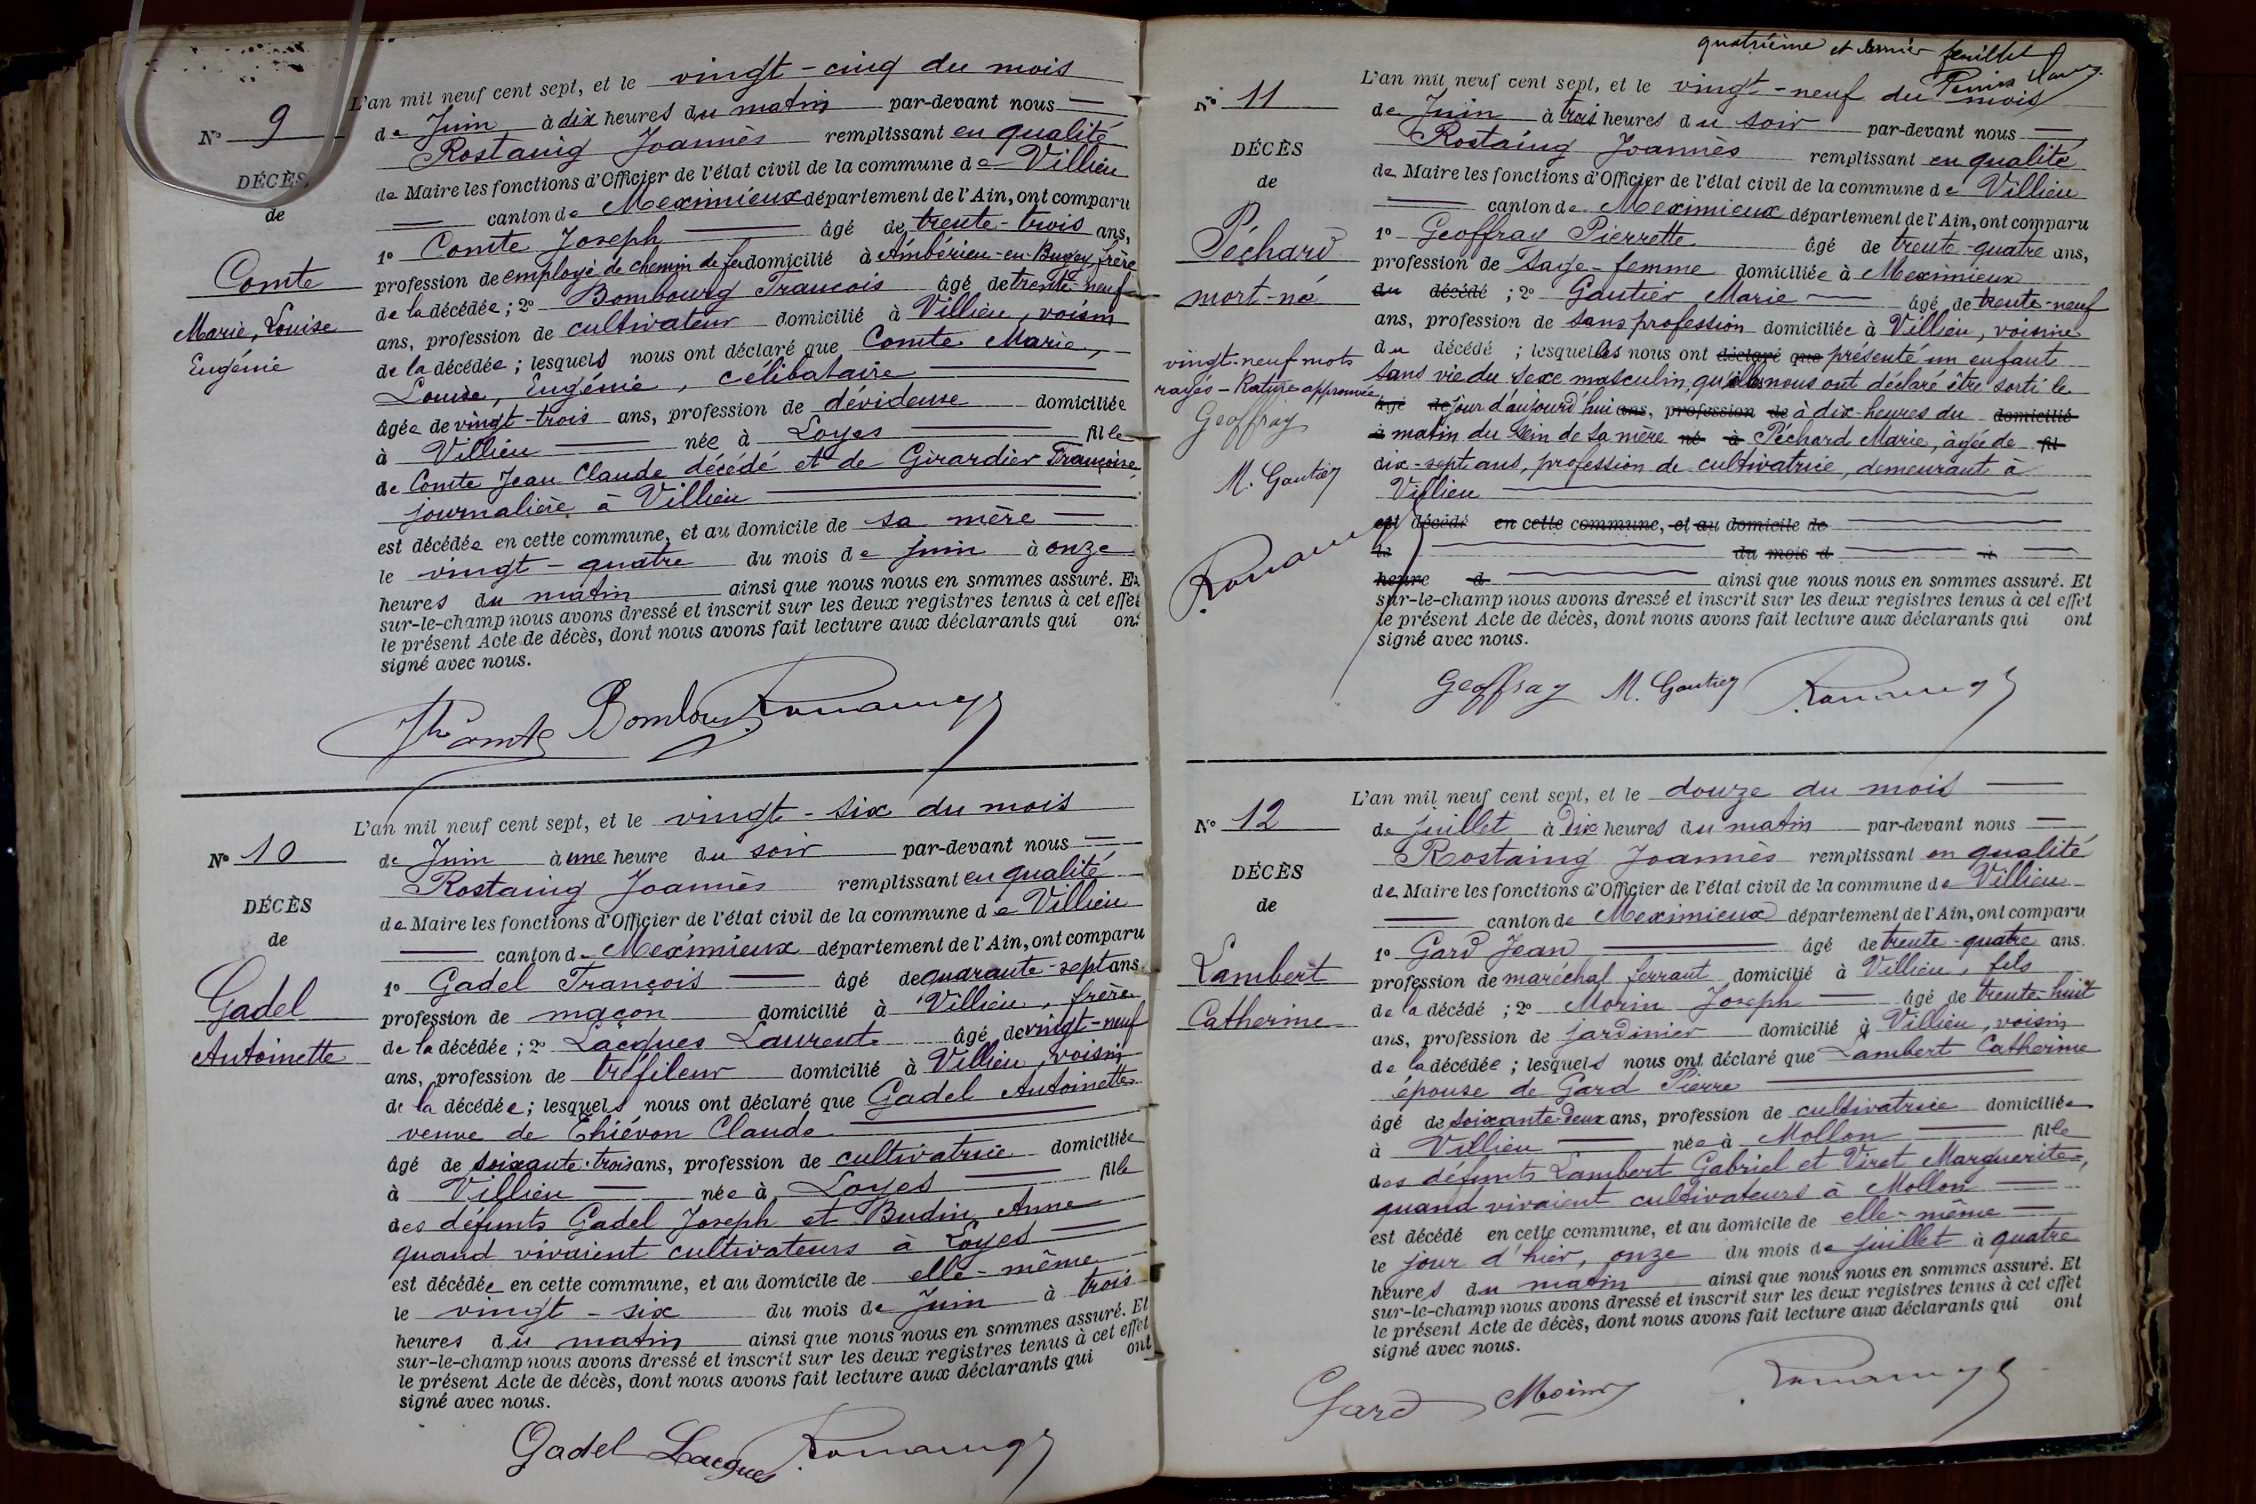 N° 9
DÉCÈS
de
Comte
Marie, Louise
Eugénie
L'an mil neuf cent sept, et le vingt-cinq du mois
de Juin à dix heures du matin par-devant nous
Rostaing Joannès remplissant en qualité
de Maire les fonctions d'Officier de l'état civil de la commune de Villieu
canton de Meximieux département de l'Ain, ont comparu
1° Comte Joseph âgé de trente-trois ans,
profession de employé de chemin de fer domicilié à Ambérieu-en-Bugey, frère
de la décédée; 2° Bombourg Francois âgé de trente-neuf
ans, profession de cultivateur domicilié à Villieu, voisin
de la décédée; lesquels nous ont déclaré que Comte Marie,
Louise, Eugénie, célibataire
âgée de vingt-trois ans, profession de dévideuse domiciliée
à Villieu née à Loyes fille
de Comte Jean Claude décédé et de Girardier Françoise
journalière à Villieu
est décédée en cette commune, et au domicile de sa mère
le vingt-quatre du mois de juin à onze
heures du matin ainsi que nous nous en sommes assuré. Et
sur-le-champ nous avons dressé et inscrit sur les deux registres tenus à cet effet
le présent Acte de décès, dont nous avons fait lecture aux déclarants qui ont
signé avec nous.
N° 10
DÉCÈS
de
Gadel
Antoinette
L'an mil neuf cent sept, et le vingt-six du mois
de Juin à une heure du soir par-devant nous
Rostaing Joannès remplissant en qualité
de Maire les fonctions d'Officier de l'état civil de la commune de Villieu
canton de Meximieux département de l'Ain, ont comparu
1° Gadel François âgé de quarante-sept ans
profession de maçon domicilié à Villieu, frère
de la décédée; 2° Lacques Laurent âgé de vingt-neuf
ans, profession de tréfileur domicilié à Villieu, voisin
de la décédée; lesquels nous ont déclaré que Gadel Antoinette
veuve de Thiévon Claude
âgé de soixante-trois ans, profession de cultivatrice domiciliée
à Villieu née à Loyes fille
des défunts Gadel Joseph et Budin Anne
quand vivaient cultivateurs à Loyes
est décédée en cette commune, et au domicile de elle-même
le vingt-six du mois de Juin à trois
heures du matin ainsi que nous nous en sommes assuré. Et
sur-le-champ nous avons dressé et inscrit sur les deux registres tenus à cet effet
le présent Acte de décès, dont nous avons fait lecture aux déclarants qui ont
signé avec nous.
Gadel Lacques
quatrième et dernier feuillet
N° 11
DÉCÈS
de
Péchard
mort-né
vingt-neuf mots
rayés - Rature approuvée
Geoffray
M. Gautier
L'an mil neuf cent sept, et le vingt-neuf du mois
de Juin à trois heures du soir par-devant nous
Rostaing Joannès remplissant en qualité
de Maire les fonctions d'Officier de l'état civil de la commune de Villieu
canton de Meximieux département de l'Ain, ont comparu
1° Geoffray Pierrette âgé de trente-quatre ans,
profession de Sage-femme domiciliée à Meximieux
du décédé; 2° Gautier Marie âgé de trente-neuf
ans, profession de sans profession domiciliée à Villieu, voisine
du décédé; lesquelles nous ont déclaré que présenté un enfant
sans vie du sexe masculin, qu'elles nous ont déclaré être sorti le
âgé de jour d'aujourd'hui ans, profession de à dix heures du domicilié
à matin du sein de sa mère né à Péchard Marie, âgée de fil
dix-sept ans, profession de cultivatrice, demeurant à
Villieu
est décédé en cette commune, et au domicile de
le du mois d à
heure d ainsi que nous nous en sommes assuré. Et
sur-le-champ nous avons dressé et inscrit sur les deux registres tenus à cet effet
le présent Acte de décès, dont nous avons fait lecture aux déclarants qui ont
signé avec nous.
Geoffray M. Gautier
N° 12
DÉCÈS
de
Lambert
Catherine
L'an mil neuf cent sept, et le douze du mois
de juillet à Dix heures du matin par-devant nous
Rostaing Joannès remplissant en qualité
de Maire les fonctions d'Officier de l'état civil de la commune de Villieu
canton de Meximieux département de l'Ain, ont comparu
1° Gard Jean âgé de trente-quatre ans.
profession de maréchal ferrant domicilié à Villieu, fils
de la décédé; 2° Morin Joseph âgé de trente-huit
ans, profession de jardinier domicilié à Villieu, voisin
de la décédée; lesquels nous ont déclaré que Lambert Catherine
épouse de Gard Pierre
âgé de soixante-deux ans, profession de cultivatrice domiciliée
à Villieu née à Mollon fille
des défunts Lambert Gabriel et Viret Marguerite,
quand vivaient cultivateurs à Mollon
est décédé en cette commune, et au domicile de elle-même
le jour d'hier, onze du mois de juillet à quatre
heures du matin ainsi que nous nous en sommes assuré. Et
sur-le-champ nous avons dressé et inscrit sur les deux registres tenus à cet effet
le présent Acte de décès, dont nous avons fait lecture aux déclarants qui ont
signé avec nous.
Gard